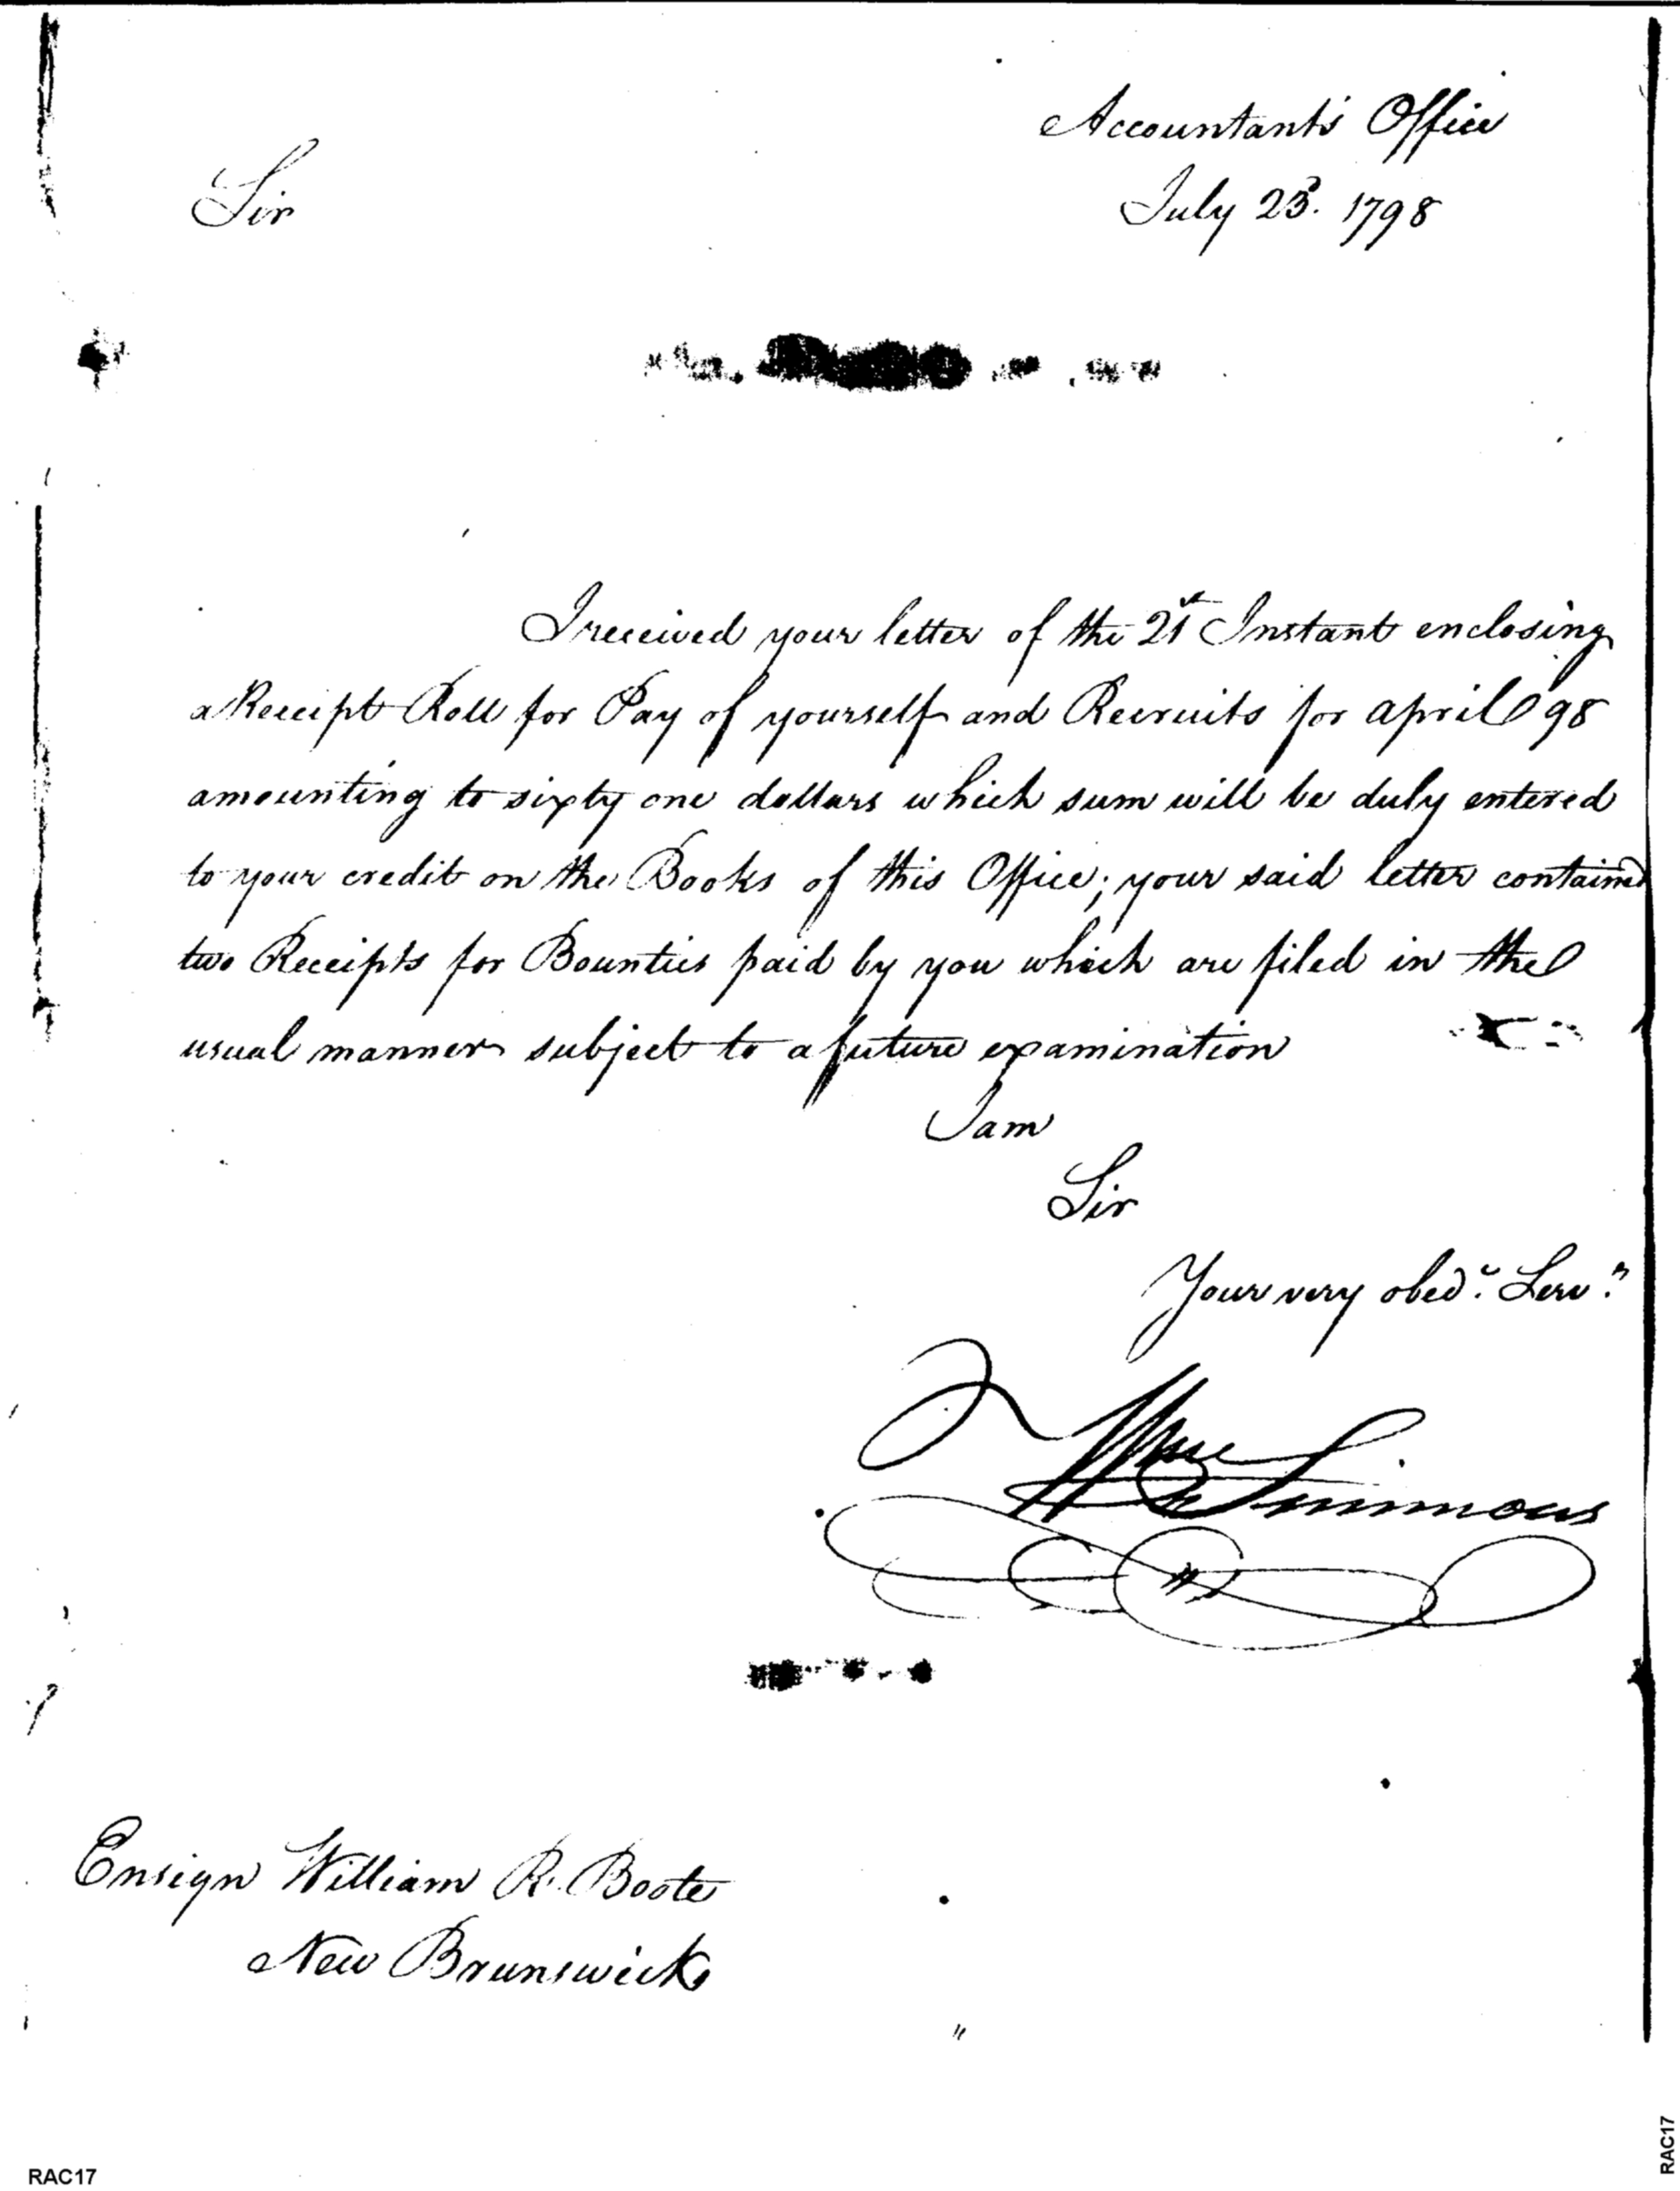 Accountants Office
Sir
July 23. 1798
I received your letter of the 21st Instant enclosing
a Receipt Roll for Pay of yourself and Recruits for april 98
amounting to sixty one dollars which sum will be duly entered
to your credit on the Books of this Office; your said letter contained
two Receipts for Bounties paid by you which are filed in the
usual manner subject to a future examination
I am
Sir
Your very obedt. Servt.
Wm Simmons
Ensign William R. Boote
New Brunswick
RAC17
RAC17